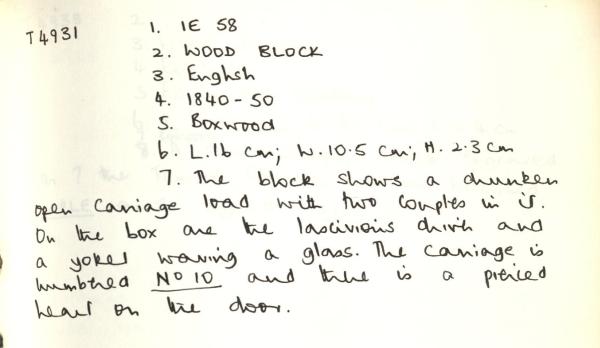 T4931
1. IE 58
2. WOOD BLOCK
3. English
4. 1840-50
5. Boxwood
6. L.16 cm; W.10.5 cm; H. 2.3 cm
7. The block shows a drunken
open carriage load with two couples in it.
On the box are the lascivious driver and
a yokel waving a glass. The carriage is
numbered No 10 and there is a pierced
heart on the door.